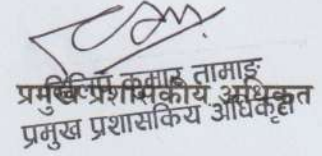 दिलिप कुमार तामाङ
प्रमुख प्रशासकीय अधिकृत
प्रमुख प्रशासकिय अधिकृत